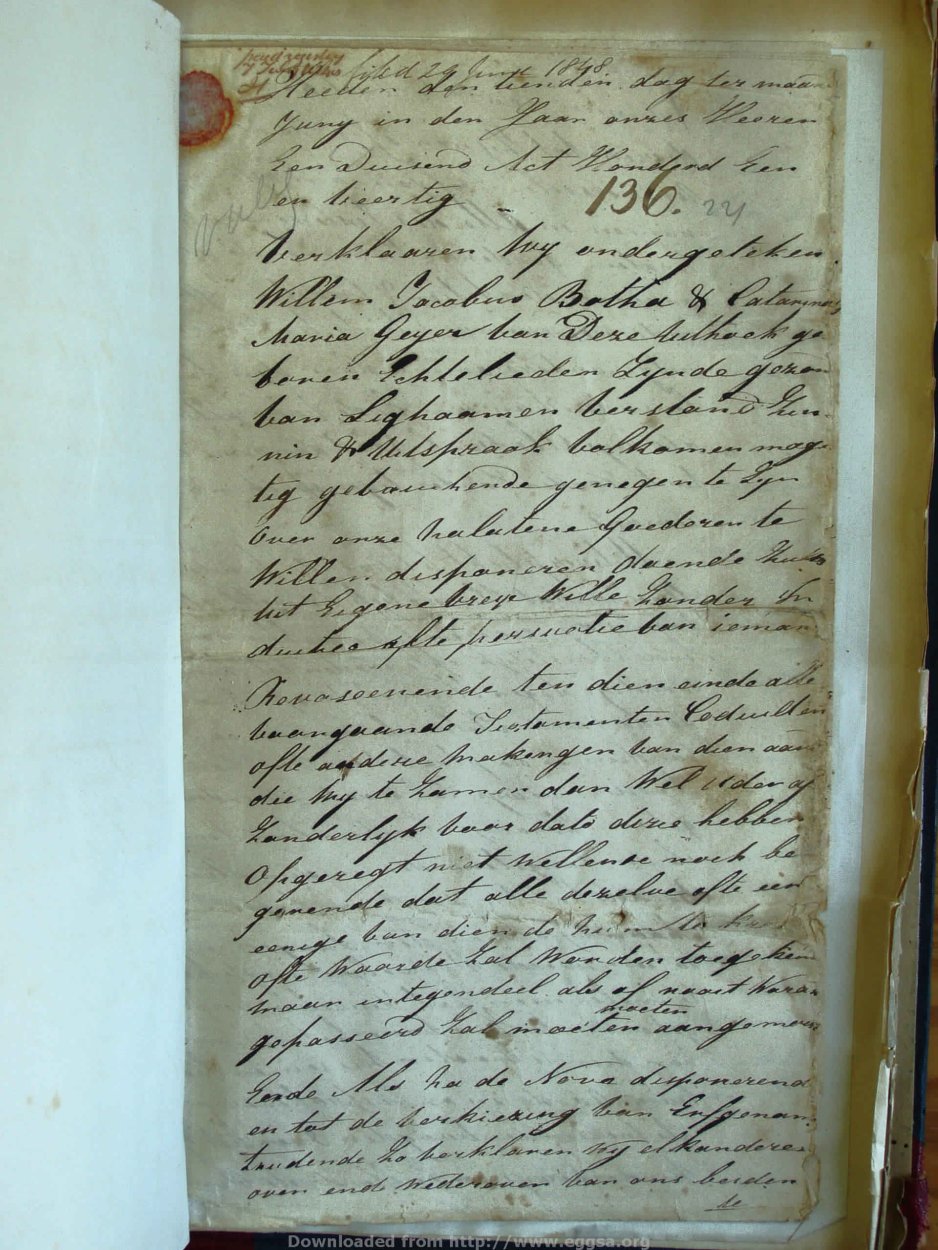 filed 29 June 1848
Heeden den tienden dag der maan
Juny in den Jaar onzes Heeren
Een Duisend Act Honderd Een
en veertig
136. 24
Verklaaren Wy ondergeteken
Willem Jacobus Botha & Catarina
Maria Geyer van Deze Uithoek ge
boren Echtelieden Zynde gezon
van Lighaamen Verstand
& Uitspraak volkomen mag
tig genegen te Zyn
over onze nalatene Goederen te
Willen disponeren doende Zulks
uit Eigene vreye Wille Zonder In
ductie ofte persuatie van ieman
Revoseerende ten dien einde alle
voorgaande Testamenten Codicillen
ofte andere makingen van dien aar
die Wy te Zamen dan Wel ieder af
Zonderlyk voor dato dezes hebben
Opgeregt niet Willende noch be
gerende dat alle dezelve ofte een
eenige van dien de
ofte Waarde Zal Worden toegekien
maar integendeel als of nooit Waren
moeten
gepasseerd Zal moeten aangemerk
Ende Als na de Nova disponerend
en tot de verkiezing van Erfgenam
tredende Zo verklaren Wy elkanderen
over ende Wederover van ons beiden
de
Downloaded from http://www.eggsa.org